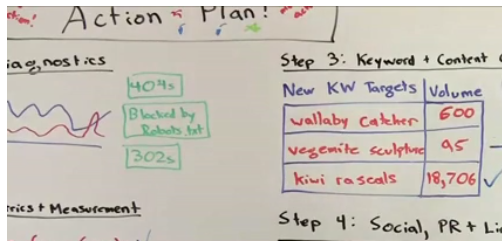 Action Plan!
agnostics
404s
Blocked by
Robots.txt
302s
Step 3: Keyword + Content
New KW Targets Volume
wallaby catcher 600
vegemite sculpture 95
kiwi rascals 18,706
trics + Measurement
Step 4: Social, PR + Li